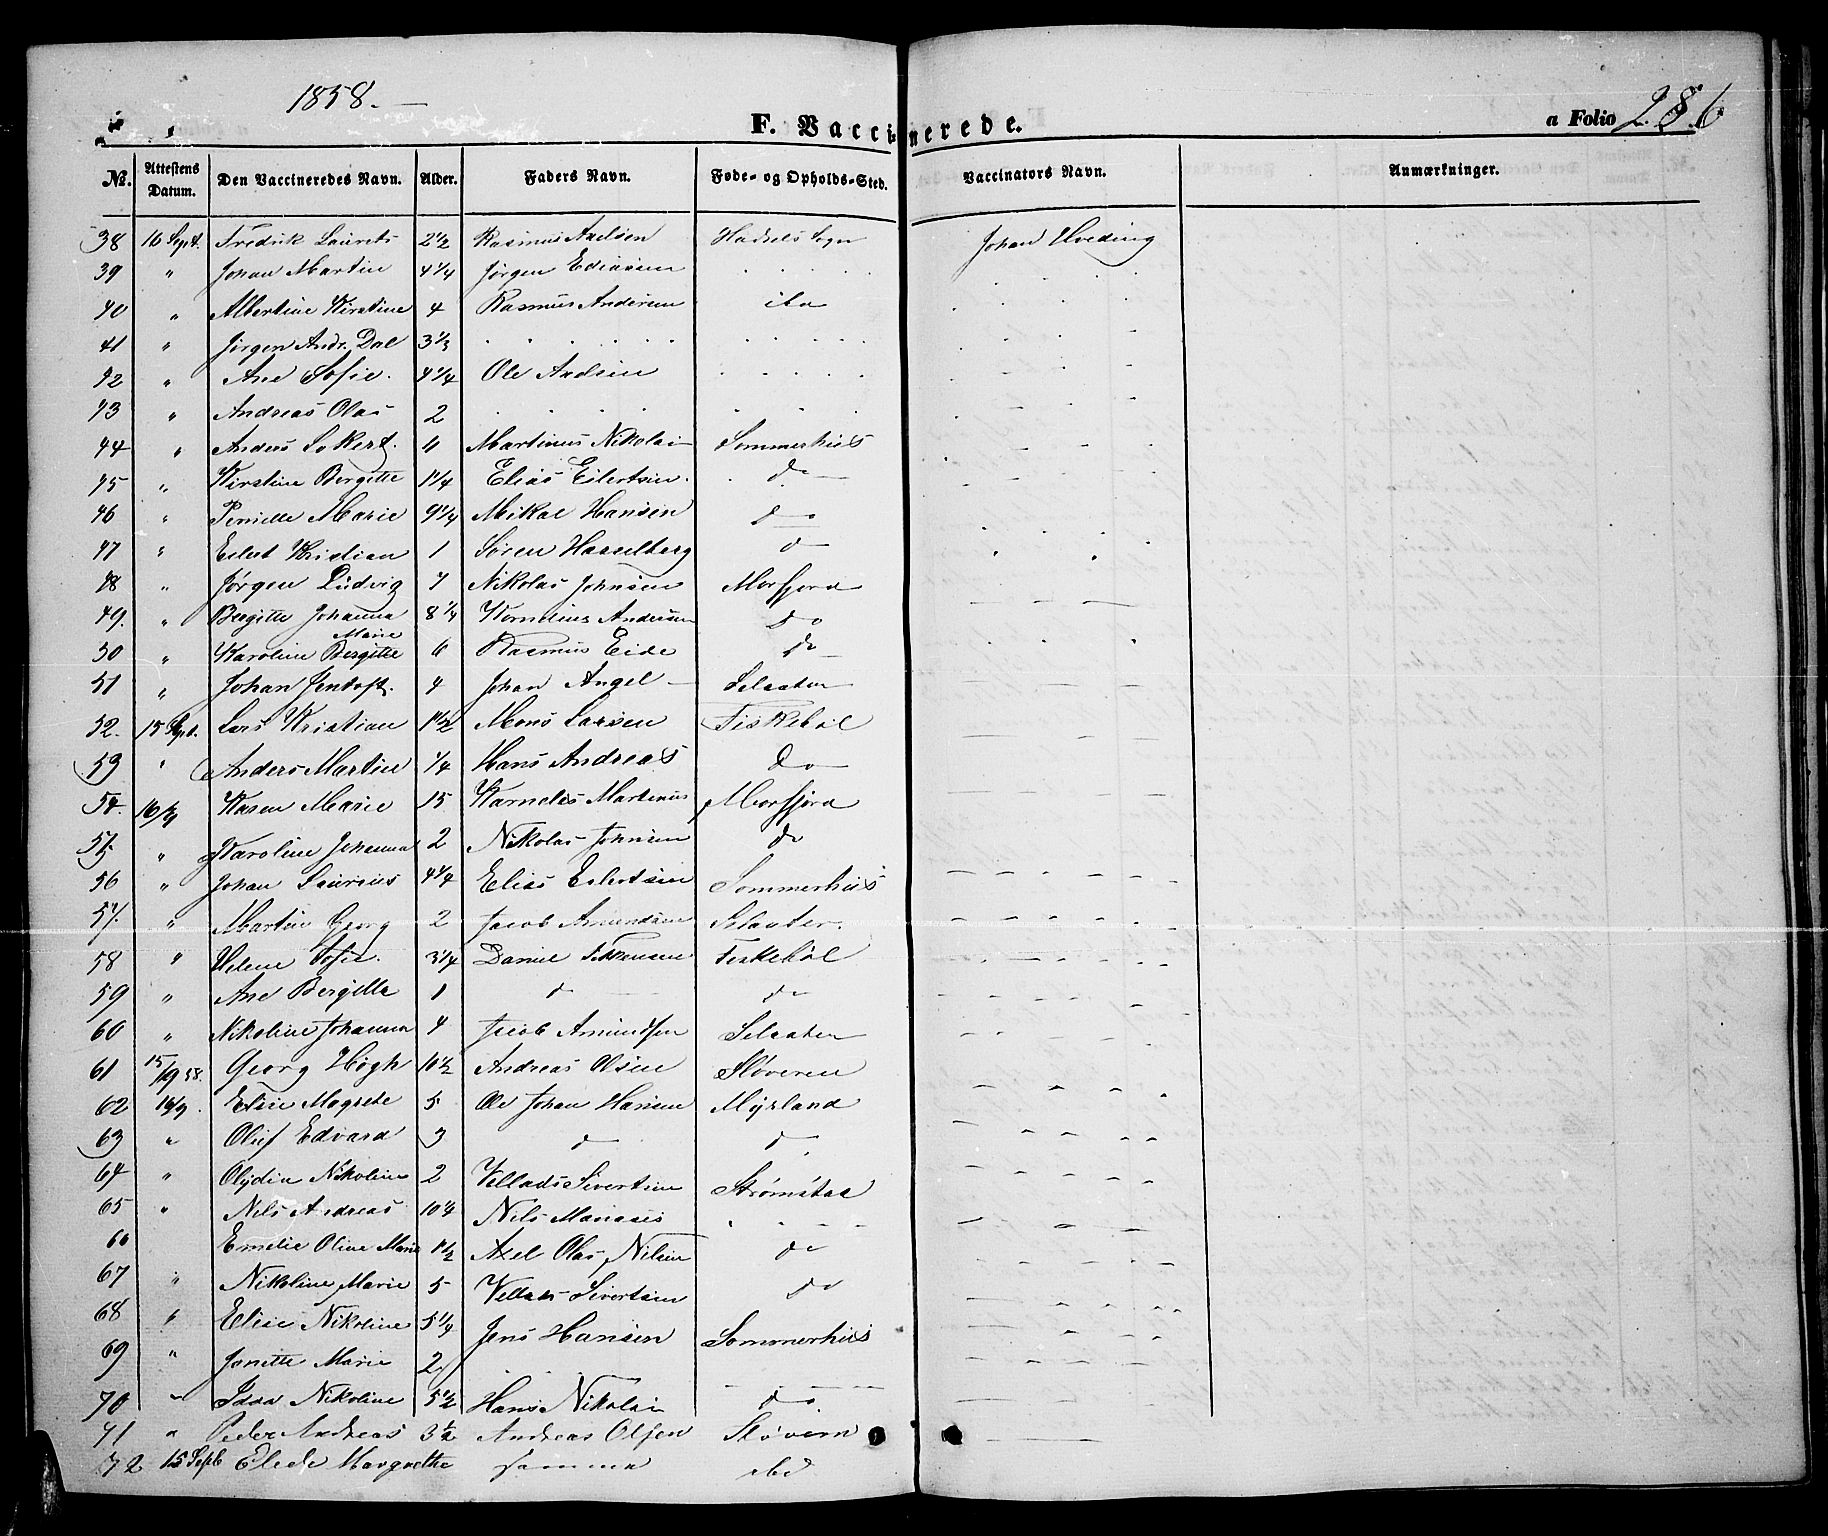 1858.
F. Vaccinerede.
a Folio 286
No. Attestens Datum. Den Vaccineredes Navn. Alder. Faders Navn. Føde- og Opholds-Sted. Vaccinators Navn. Anmærkninger.
38 16 Sept. Fredrik Laurets 2 1/2 Rasmus Axelsen Hadsels Sogn Johan Hveding
39 " Johan Martin 4 1/4 Jørgen
40 " Albertine Kirstine 4 Rasmus Andersen
41 " Jørgen Andr. Dal 3 1/3
42 " Ane Sofie. 4 1/4 Ole Axelsen
43 " Andreas Olas 2
44 " Anders 6 Martinus Nikolai Sommerhus
45 " Kirstine Bergitte 1 1/4 Elias Eilertsen do
46 " Pernille Marie 9 1/4 Mikal Hansen do
47 " Eilert Kristian 1 Søren Hasselberg do
48 " Jørgen Ludvig 7 Nikolas Johnsen Morfjord
49. " Bergitte Johanna 8 1/4 Kornelius Andersen do
50 " Karoline Bergitte Marie 6 Rasmus Eide do
51 " Johan Jentoft. 4 Johan Angel Selsater
52. 15 Sept. Lars Kristian 1 1/2 Mons Larsen Fiskebøl
53 " Anders Martin 1/4 Hans Andreas Do
54. 16/9 Karen Marie 15 Kornelis Martinus Morfjord
55 " Karoline Johanna 2 Nikolas Johnsen do
56 " Johan Laurius 4 1/4 Elias Eilertsen Sommerhus
57. " Martin Georg 2 Jacob Amundsen Selsater.
58 " Helene Sofie. 3 1/4 Daniel Fiskebøl
59 " Ane Bergitte 1 do do
60 " Nikoline Johanna 4 Jacob Amundsen Selsater
61 15/9 58. Georg Høgh 10 1/2 Andreas Olsen Sløveren
62 16/9. Elise Magrete 5 Ole Johan Hansen Myrland
63 " Oluf Edvard 3 do do
64 " Olydia Nikoline 2 Vellads Sivertsen Strømstad
65 " Nils Andreas 10 1/4 Nils Manases
66 Emelie Olive Marie 1 1/2 Axel Olas Nilsen do
67 " Nikoline Marie 5 Vellads Sivertsen do
68 " Elise Nikoline 5 1/4 Jens Hansen Sommerhus
69 " Jonette Marie 2
70 " Idda Nikoline 5 1/2 Hans Nikolai do
71 " Peder Andreas 3 1/2 Andreas Olsen Sløvern
72 15 Sept Elede Margrethe samme ibd